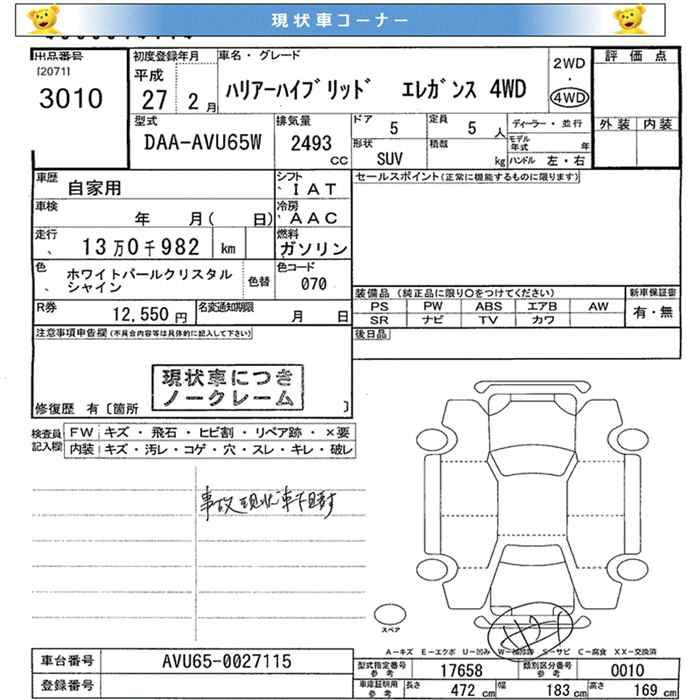 現状車コーナー
出品番号
[2071]
3010
初度登録年月
平成
27 2月
車名・グレード
ハリアーハイブリッド エレガンス 4WD
2WD
・
4WD
評価点
外装 内装
型式
DAA-AVU65W
排気量
2493
CC
ドア
5
定員
5 人
形状
SUV
積載
kg
ディーラー・並行
モデル年式 年
ハンドル 左・右
車歴
自家用
シフト
IAT
セールスポイント(正常に機能するものに限ります)
車検
年 月( 日)
冷房
AAC
走行
13万0千982 km
燃料
ガソリン
色
ホワイトパールクリスタル
シャイン
色替
色コード
070
装備品 (純正品に限り○をつけてください)
PS PW ABS エアB AW
SR ナビ TV カワ
新車保証書
有・無
R券
12,550 円
名変通知期限
月 日
後日品
注意事項申告欄(不具合内容等は具体的に記入して下さい)
現状車につき
ノークレーム
修復歴 有〔箇所 〕
検査員記入欄
FW キズ・飛石・ヒビ割・リペア跡・×要
内装 キズ・汚レ・コゲ・穴・スレ・キレ・破レ
事故現状車
スペア
A−キズ E−エクボ U−凹み W−補修跡 S−サビ C−腐食 XX−交換済
車台番号
AVU65-0027115
登録番号
型式指定番号
参考
17658
類別区分番号
参考
0010
車庫証明用
参考
長さ
472 cm
幅
183 cm
高さ
169 cm